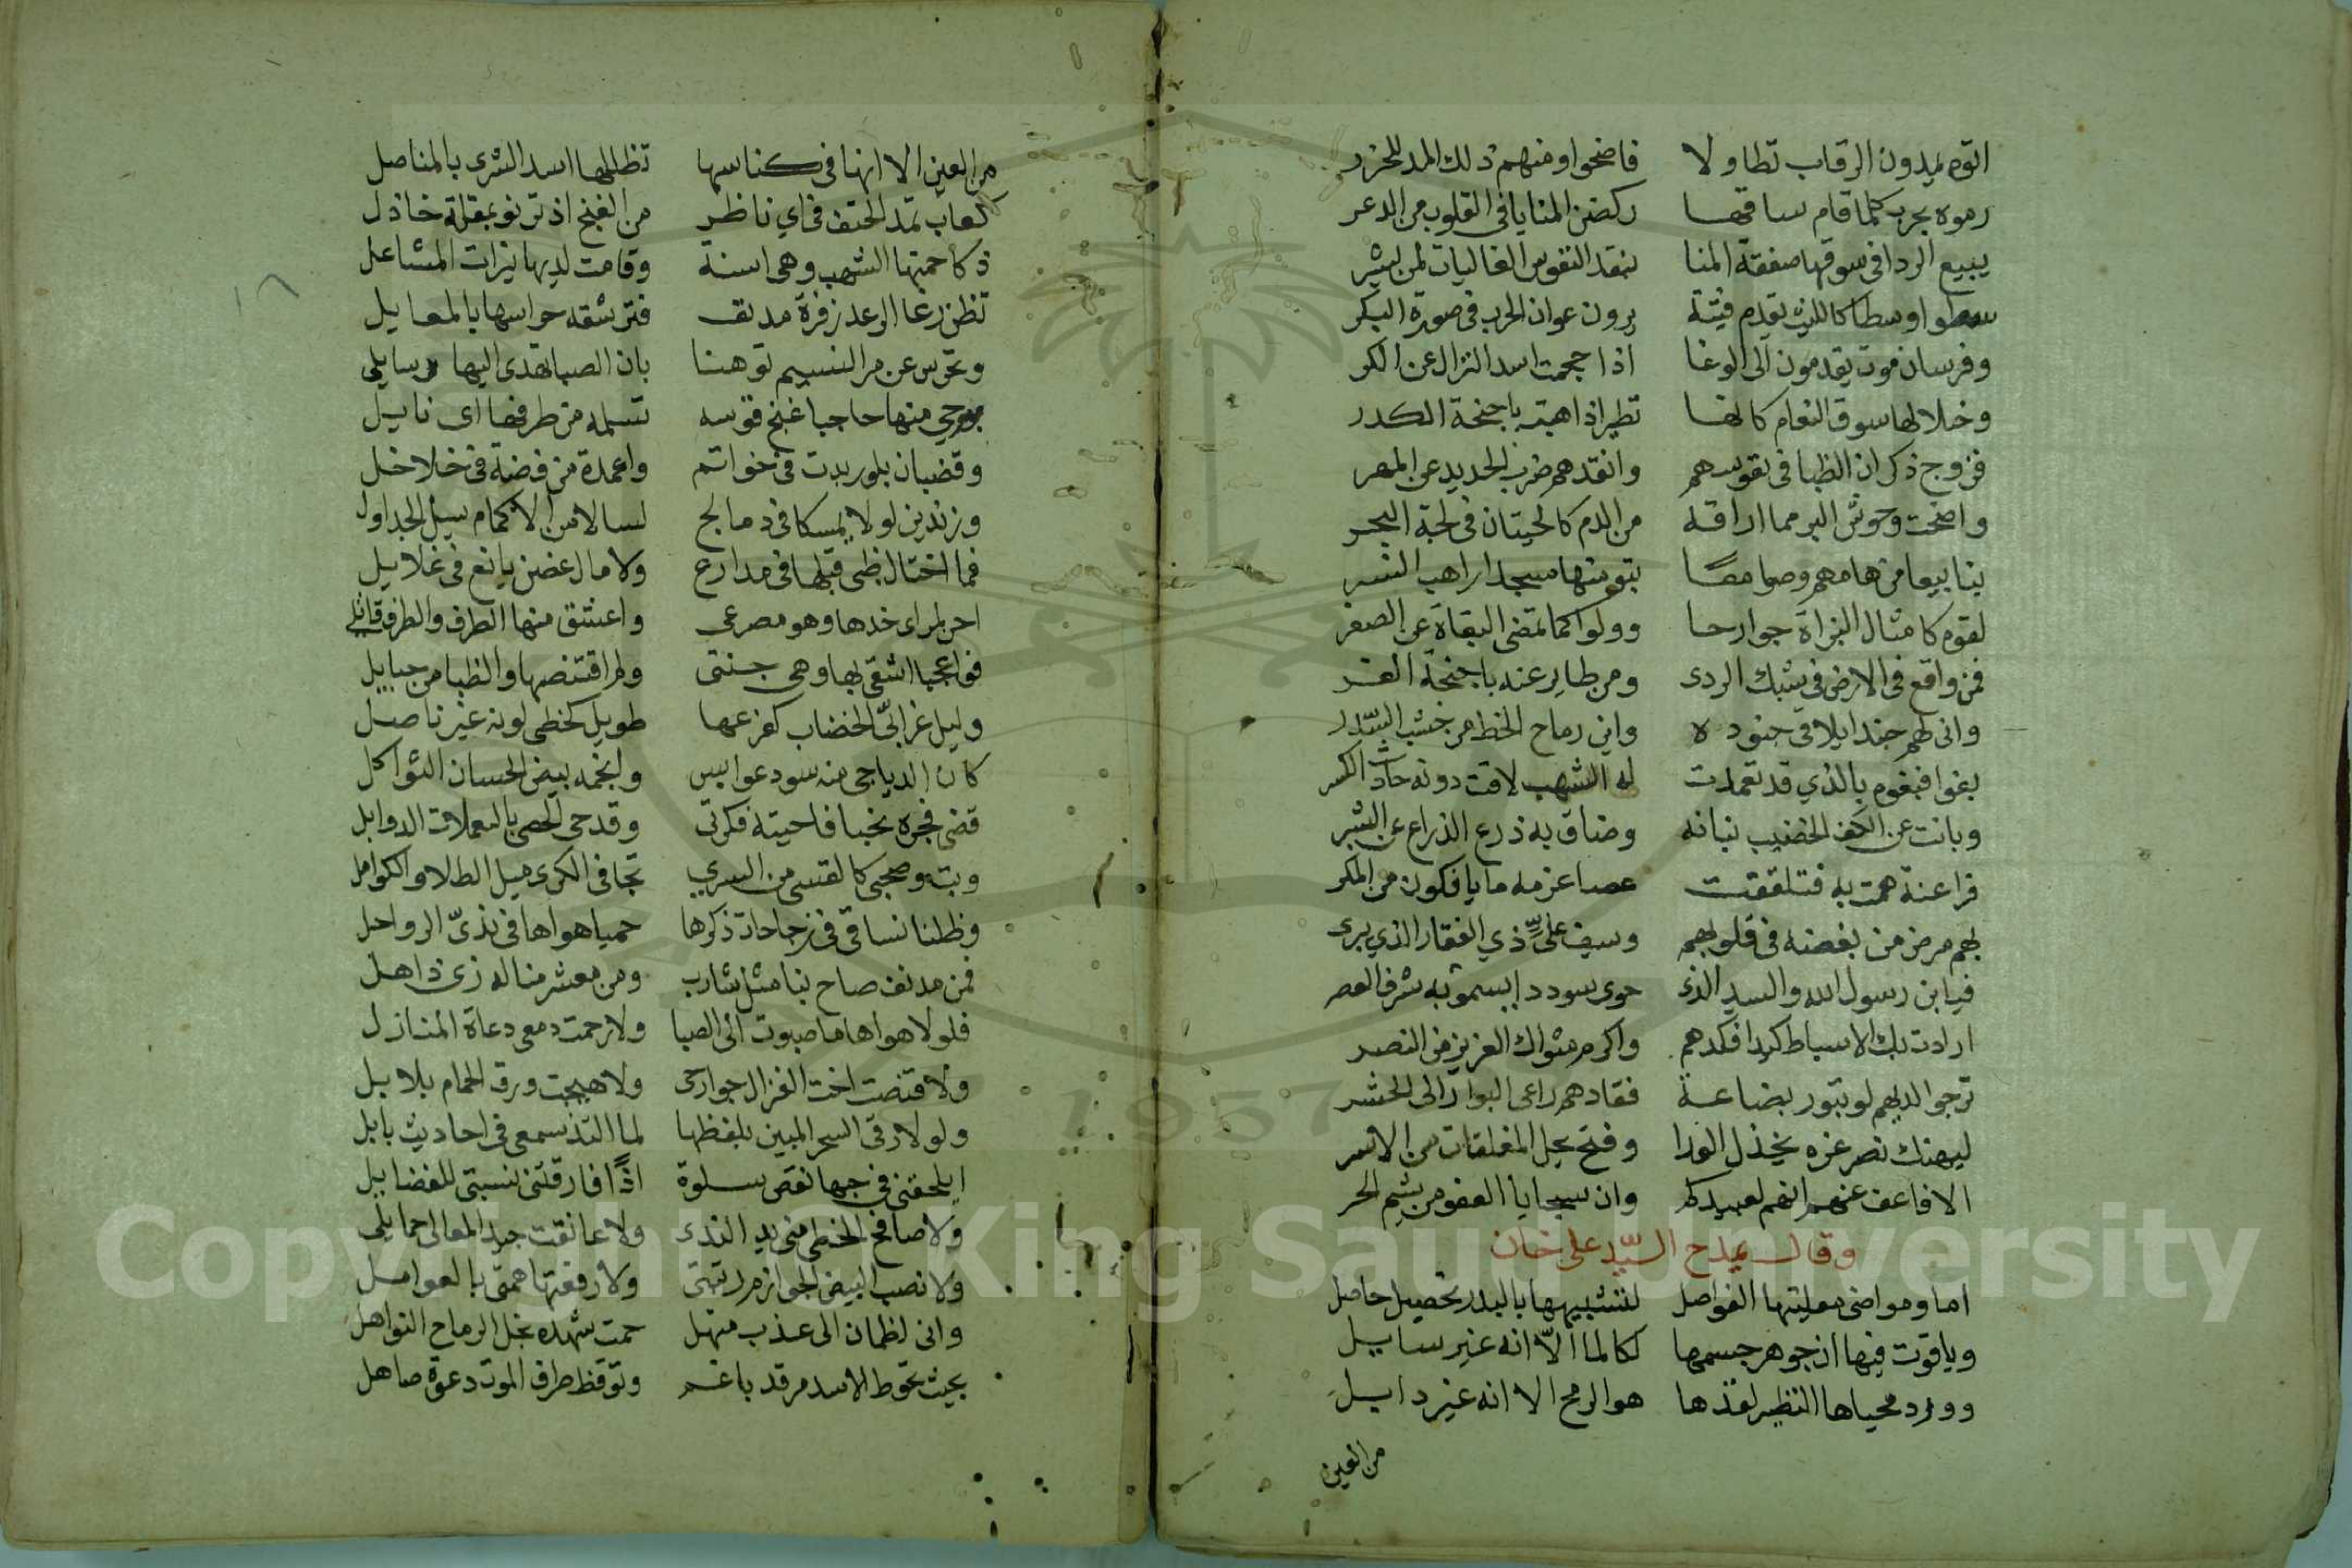 اتوه يمدون الرقاب تطاولا فاضحوا ومنهم ذلك المد للجزر
رموه بحرب كلما قام ساقها ركضن المنايا في القلوب من الدعر
يبيع الردا في سوقها صفقة المنا بنقد النفوس الغاليات لمن يشر
سطوا وسطا كالليث يقدم فتية يرون عوان الحرب في صورة البكر
وفرسان موت يقدمون الى الوغا اذا جحمت اسد النزال عن الكر
وخلالها سوق النعام كانها تطير اذا هبت باجنحة الكدر
فزوج ذكران الظبا في نفوسهم وانقدهم ضرب الحديد عن المهر
واضحت وحوش البر مما اراقه من الدم كالحيتان في لجة البحر
بنا بيعا من هامهم وصوامعا بتو منها مسجدا راهب النسر
لقوم كامثال البزاة جوارحا وولوا كما تمضى البغاة عن الصقر
فمن واقع في الارض في شبك الردى ومن طاير عنه باجنحة الفر
وانى لهم جند ايلاقى جنوده واين رماح الخط من خشب السدر
بغوا فبغوهم بالذي قد تعمدت له الشهب لاقت دونه حادث الكسر
وبانت عن الكف الخضيب بنانه وضاق به ذرع الذراع عن الشبر
فراعنة همت به فتلقفت عصا عزمه ما يافكون من المكر
بهم مرض من بغضه في قلوبهم وسيف على ذي الفقار الذي يبرى
فيا ابن رسول الله والسيد الذى حوى سوددا يسمو به شرف العصر
ارادت بك الاسباط كيدا فكدهم واكرم مثواك العزيز من النصر
ترجوا لديهم لو تبور بضاعة فقادهم راعى البوار الى الخسر
ليهنك نصر عزه يخذل العدا وفتح يحل المغلقات من الاسر
الا فاعف عنهم انهم لعبيدكم وان سجايا العفو من شيم الحر
وقال يمدح السيد على خان
اما ومواضى مقلتيها الفواصل لتشبيهها بالبدر تحصيل حاصل
وياقوت فيها ان جوهر جسمها لكالما الا انه غير سايل
وورد محياها النظير لقدها هو الرمح الا انه غير دابل
من العين
من العين الا انها في كناسها تظللها اسد الشرى بالمناصل
كعاب تمد الحتف في اي ناظر من الغنج اذ ترنو بمقلة خاذل
ذكا حمتها الشهب وهى اسنة وقامت لديها نيرات المشاعل
تظن رغا الوعد زفرة مدنف فترشقه حراسها بالمعابل
وتحرس عن مر النسيم توهنا بان الصبا تهدى اليها رسايلى
منها حاجبا غنج قوسه تسله من طرفها اى نابل
وقضبان بلور بدت في خواتم واعمدة من فضة في خلاخل
وزندين لولا يمسكا في دمالج لسالا من الاكمام سيل الجداول
فما اختال ظبى قبلها في مدارع ولا مال غصن يانع في غلايل
احن لمراى خدها وهو مصرعى واعشق منها الطرف والطرف قاتلى
فوا عجبا اشقى بها وهى جنتى ولم اقتنصها والظبا من حبايل
وليل غرابى الخضاب كفرعها طويل كحظى لونه غير ناصل
كان الدياجى منه سود عوابس وانجمه بيض الحسان الثواكل
قضى فجره نحبا فاحيته فكرتى وقد حى الحصى باليعملات الدوابل
وبت وصحبى كالقسى من السرى تجافى الكرى ميل الطلا والكوامل
وظلنا نساقى في زجاجات ذكرها حميا هواها في ندى الرواحل
فمن مدنف صاح بنا مثل شارب ومن معشر منا له زى ذاهل
فلولا هواها ما صبوت الى الصبا ولا زحمت دمعى دعاة المنازل
ولا قتنصت اخت الغزال جوارحى ولا هيجت ورق الحمام بلابل
ولولا رقى السحر المبين بلفظها لما التذ سمعى في احاديث بابل
ايلحقنى في حبها نقص سلوة اذا فارقتنى نسبتى للفضايل
ولا صافح الخطى منى يد الندى ولا عانقت جيد المعالى حمايلى
ولا نصب البيض الجوازم رتبتى ولا رفعتها همتى بالعوامل
وانى لظمان الى عذب منهل حمت شهده نحل الرماح النواهل
بحيث تحوط الاسد مرقد باغم وتوقظ طرف الموت دعوة صاهل
Copyright © King Saud University
1957